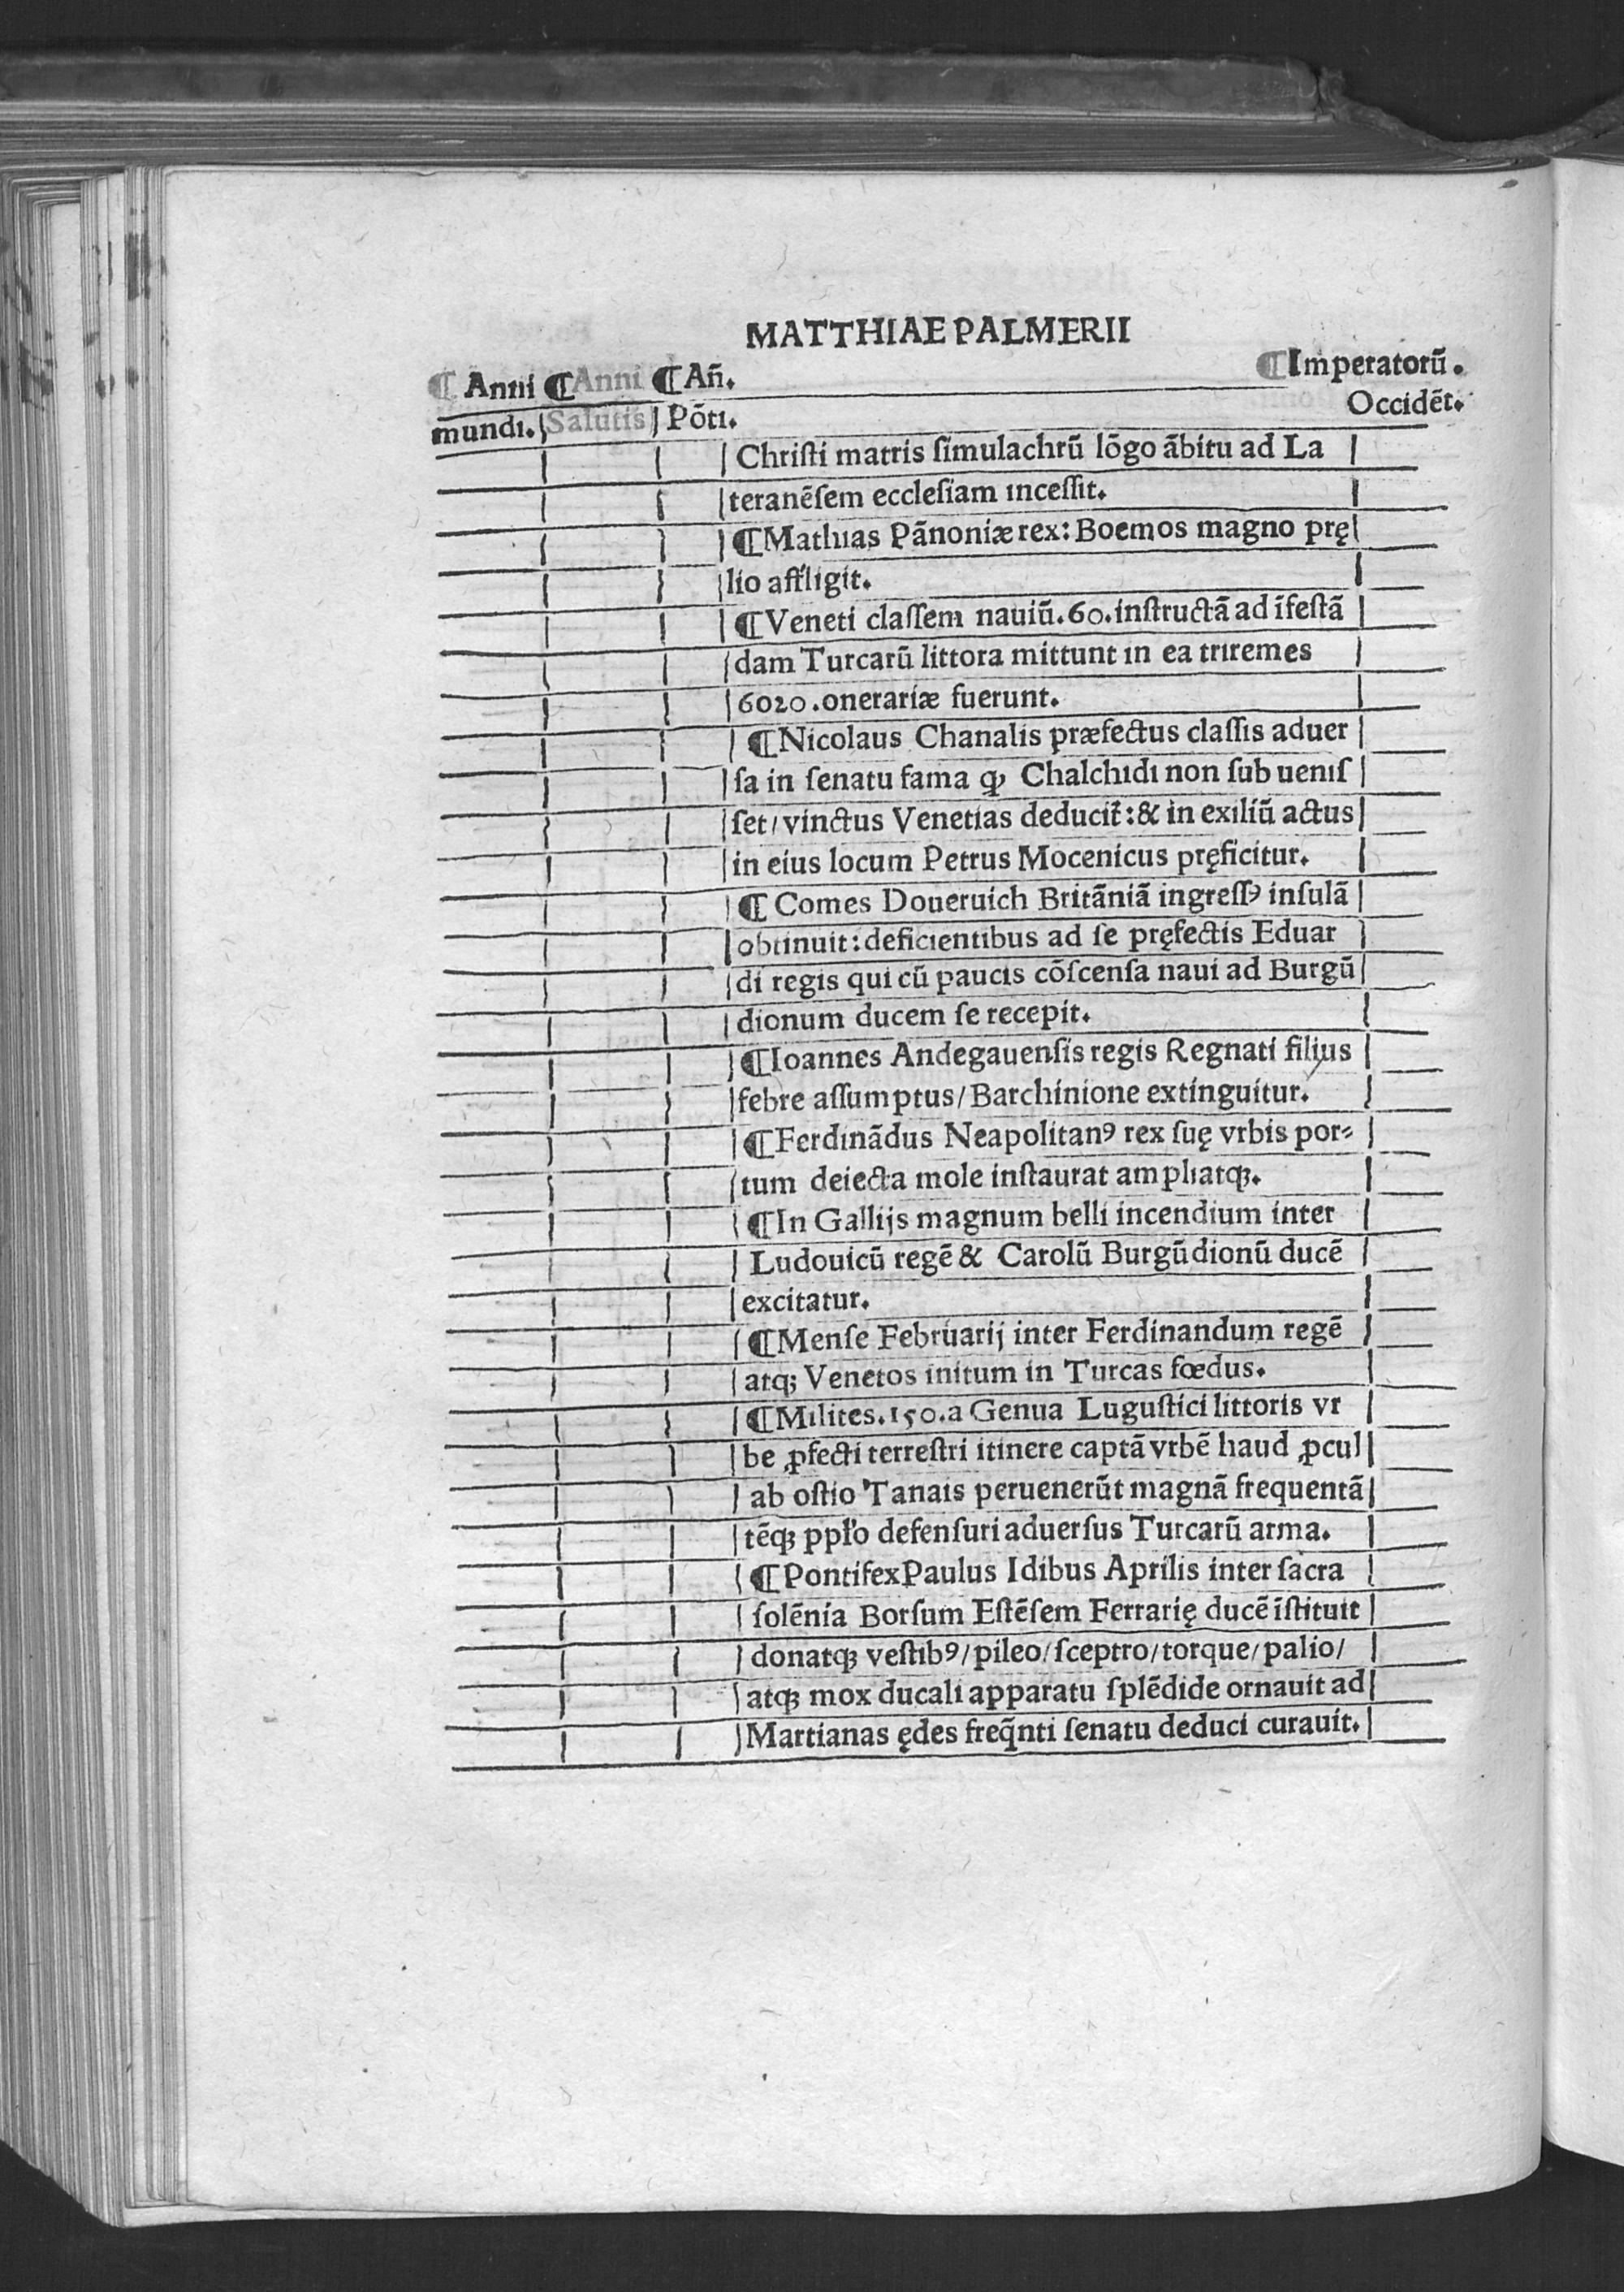 MATTHIAE PALMERII
¶ Anni ¶ Anni ¶ Añ. ¶ Imperatorũ.
mundi. Salutis Põti. Occidẽt.
Christi matris simulachrũ lõgo ãbitu ad La
teranẽsem ecclesiam incessit.
¶ Mathias Pãnoniæ rex: Boemos magno prę
lio affligit.
¶ Veneti classem nauiũ. 60. instructã ad ĩfestã
dam Turcarũ littora mittunt in ea triremes
6020. onerariæ fuerunt.
¶ Nicolaus Chanalis præfectus classis aduer
sa in senatu fama ꝙ Chalchidi non sub uenis
set/ vinctus Venetias deducit̃: & in exiliũ actus
in eius locum Petrus Mocenicus pręficitur.
¶ Comes Doueruich Britãniã ingressꝰ insulã
obtinuit: deficientibus ad se pręfectis Eduar
di regis qui cũ paucis cõscensa naui ad Burgũ
dionum ducem se recepit.
¶ Ioannes Andegauensis regis Regnati filius
febre assumptus/ Barchinione extinguitur.
¶ Ferdinãdus Neapolitanꝰ rex suę vrbis por⸗
tum deiecta mole instaurat ampliatq;.
¶ In Gallijs magnum belli incendium inter
Ludouicũ regẽ & Carolũ Burgũdionũ ducẽ
excitatur.
¶ Mense Februarij inter Ferdinandum regẽ
atq; Venetos initum in Turcas fœdus.
¶ Milites. 150. a Genua Lugustici littoris vr
be ꝓfecti terrestri itinere captã vrbẽ haud ꝓcul
ab ostio Tanais peruenerũt magnã frequentã
tẽq; ppło defensuri aduersus Turcarũ arma.
¶ Pontifex Paulus Idibus Aprilis inter sacra
solẽnia Borsum Estẽsem Ferrarię ducẽ ĩstituit
donatq; vestibꝰ/ pileo/ sceptro/ torque/ palio/
atq; mox ducali apparatu splẽdide ornauit ad
Martianas ędes freq̃nti senatu deduci curauit.